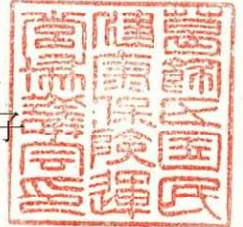 子
葛飾区国民
健康保険運
営協議会印